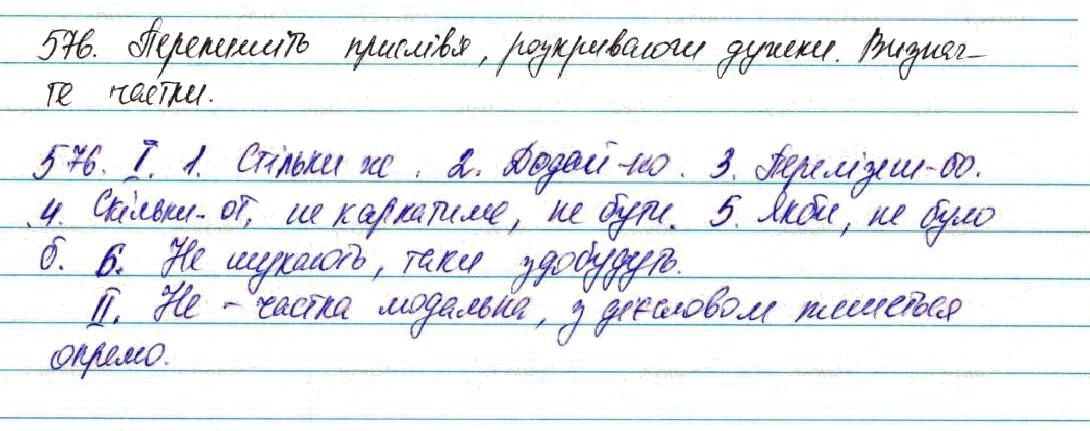 576. Перепишіть прислів'я, розкриваючи дужки. Визнач-
те частки.
576. I. 1. Стільки ж. 2. Додай-но. 3. Перелізеш-бо.
4. Скільки-от, не каркатиме, не бути. 5. Якби, не було
б. 6. Не шукають, таки здобудуть.
II. Не - частка модальна, з дієсловом пишеться
окремо.